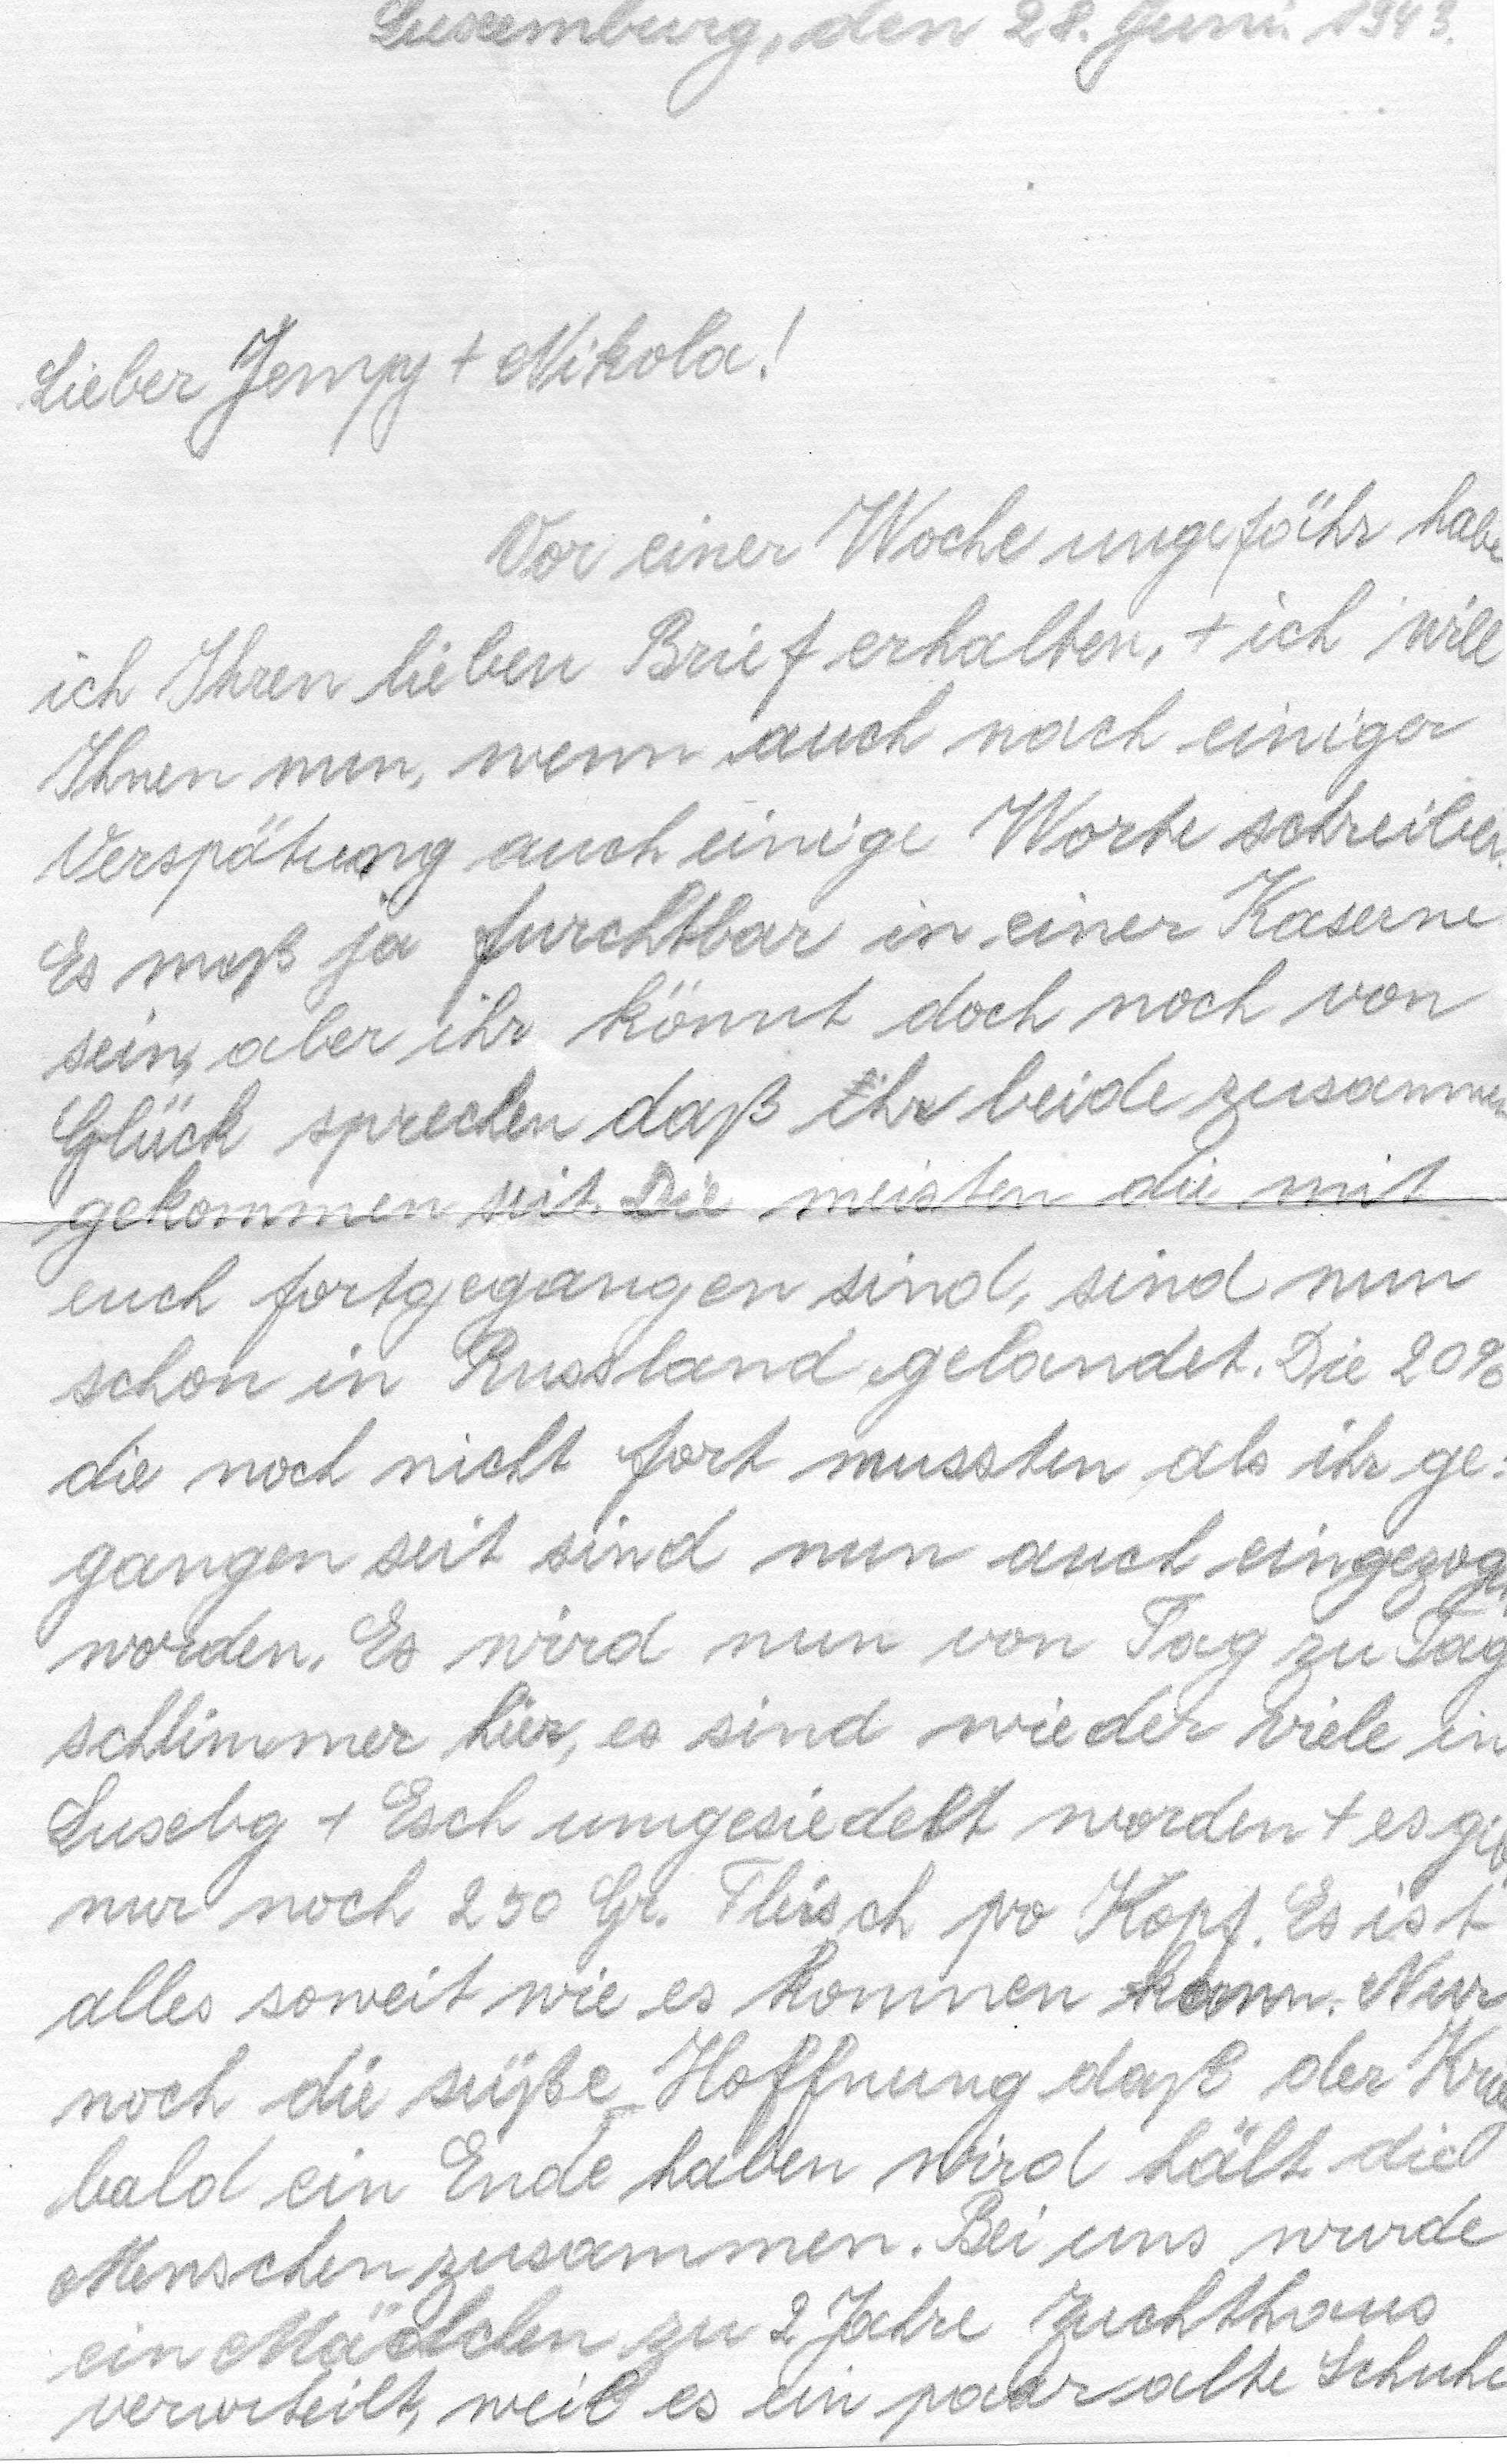 Luxemburg, den 28. Juni 1943.
Lieber Jempy + Nikola!
Vor einer Woche ungefähr habe
ich Ihren lieben Brief erhalten, + ich will
Ihnen nun, wenn auch nach einiger
Verspätung auch einige Worte schreiben.
Es muß ja furchtbar in einer Kaserne
sein, aber ihr könnt doch noch von
Glück sprechen daß ihr beide zusammen
gekommen seit. Die meisten die mit
euch fortgegangen sind, sind nun
schon in Russland gelandet. Die 20%
die noch nicht fort mussten als ihr ge:
gangen seit sind nun auch eingezogen
worden. Es wird nun von Tag zu Tag
schlimmer hier, es sind wieder viele in
Luxbg + Esch umgesiedelt worden + es gib
nur noch 250 Gr. Fleisch pro Kopf. Es ist
alles soweit wie es kommen kann. Nur
noch die süße Hoffnung daß der Krieg
bald ein Ende haben wird hält die
Menschen zusammen. Bei uns wurde
ein Mädchen zu 2 Jahre Zuchthaus
verurteilt, weil es ein paar alte Schuhe